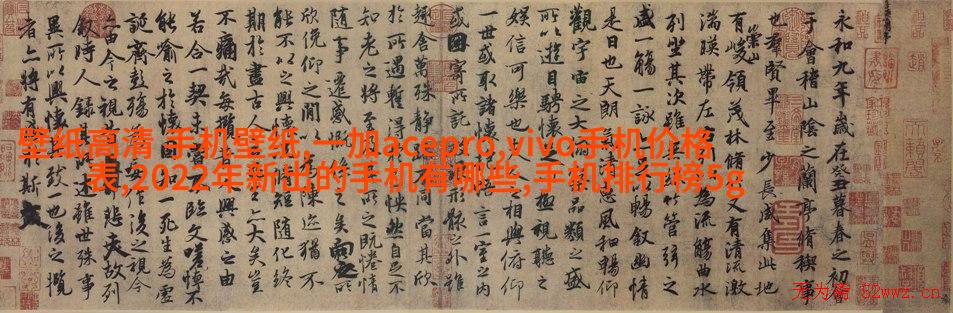 壁纸高清 手机壁纸,一加acepro,vivo手机价格
表,2022年新出的手机有哪些,手机排行榜5g
永和九年歲在癸丑暮春之初會
于會稽山陰之蘭亭脩稧事
也羣賢畢至少長咸集此地
崇山
有峻領茂林脩竹又有清流激
湍暎帶左右引以為流觴曲水
列坐其次雖無絲竹管弦之
盛一觴一詠敘幽情
是日也天朗惠風和暢仰
觀宇宙之大品類之盛
所以遊目騁懷極視聽之
娛信可樂也人之相與俯仰
一世或取諸懷言一室之內
或因寄所託形骸之外雖
趣舍萬殊靜不同當其欣
於所遇蹔得怏然自足不
知老之將至之既惓情
隨事遷感慨矣向之所
欣俛仰之閒以陳迹猶不
能不以之興懷短隨化終
期於盡古人亦大矣豈
不痛哉每攬興感之由
若合一契未臨文嗟悼不
能喻之於懷一死生為虛
誕齊彭殤作後之視今
由今之視悲夫故列
敘時人錄述雖世殊事
異所以興懷致一也後之攬
者亦將有斯文
无为斋 52wwz.cn